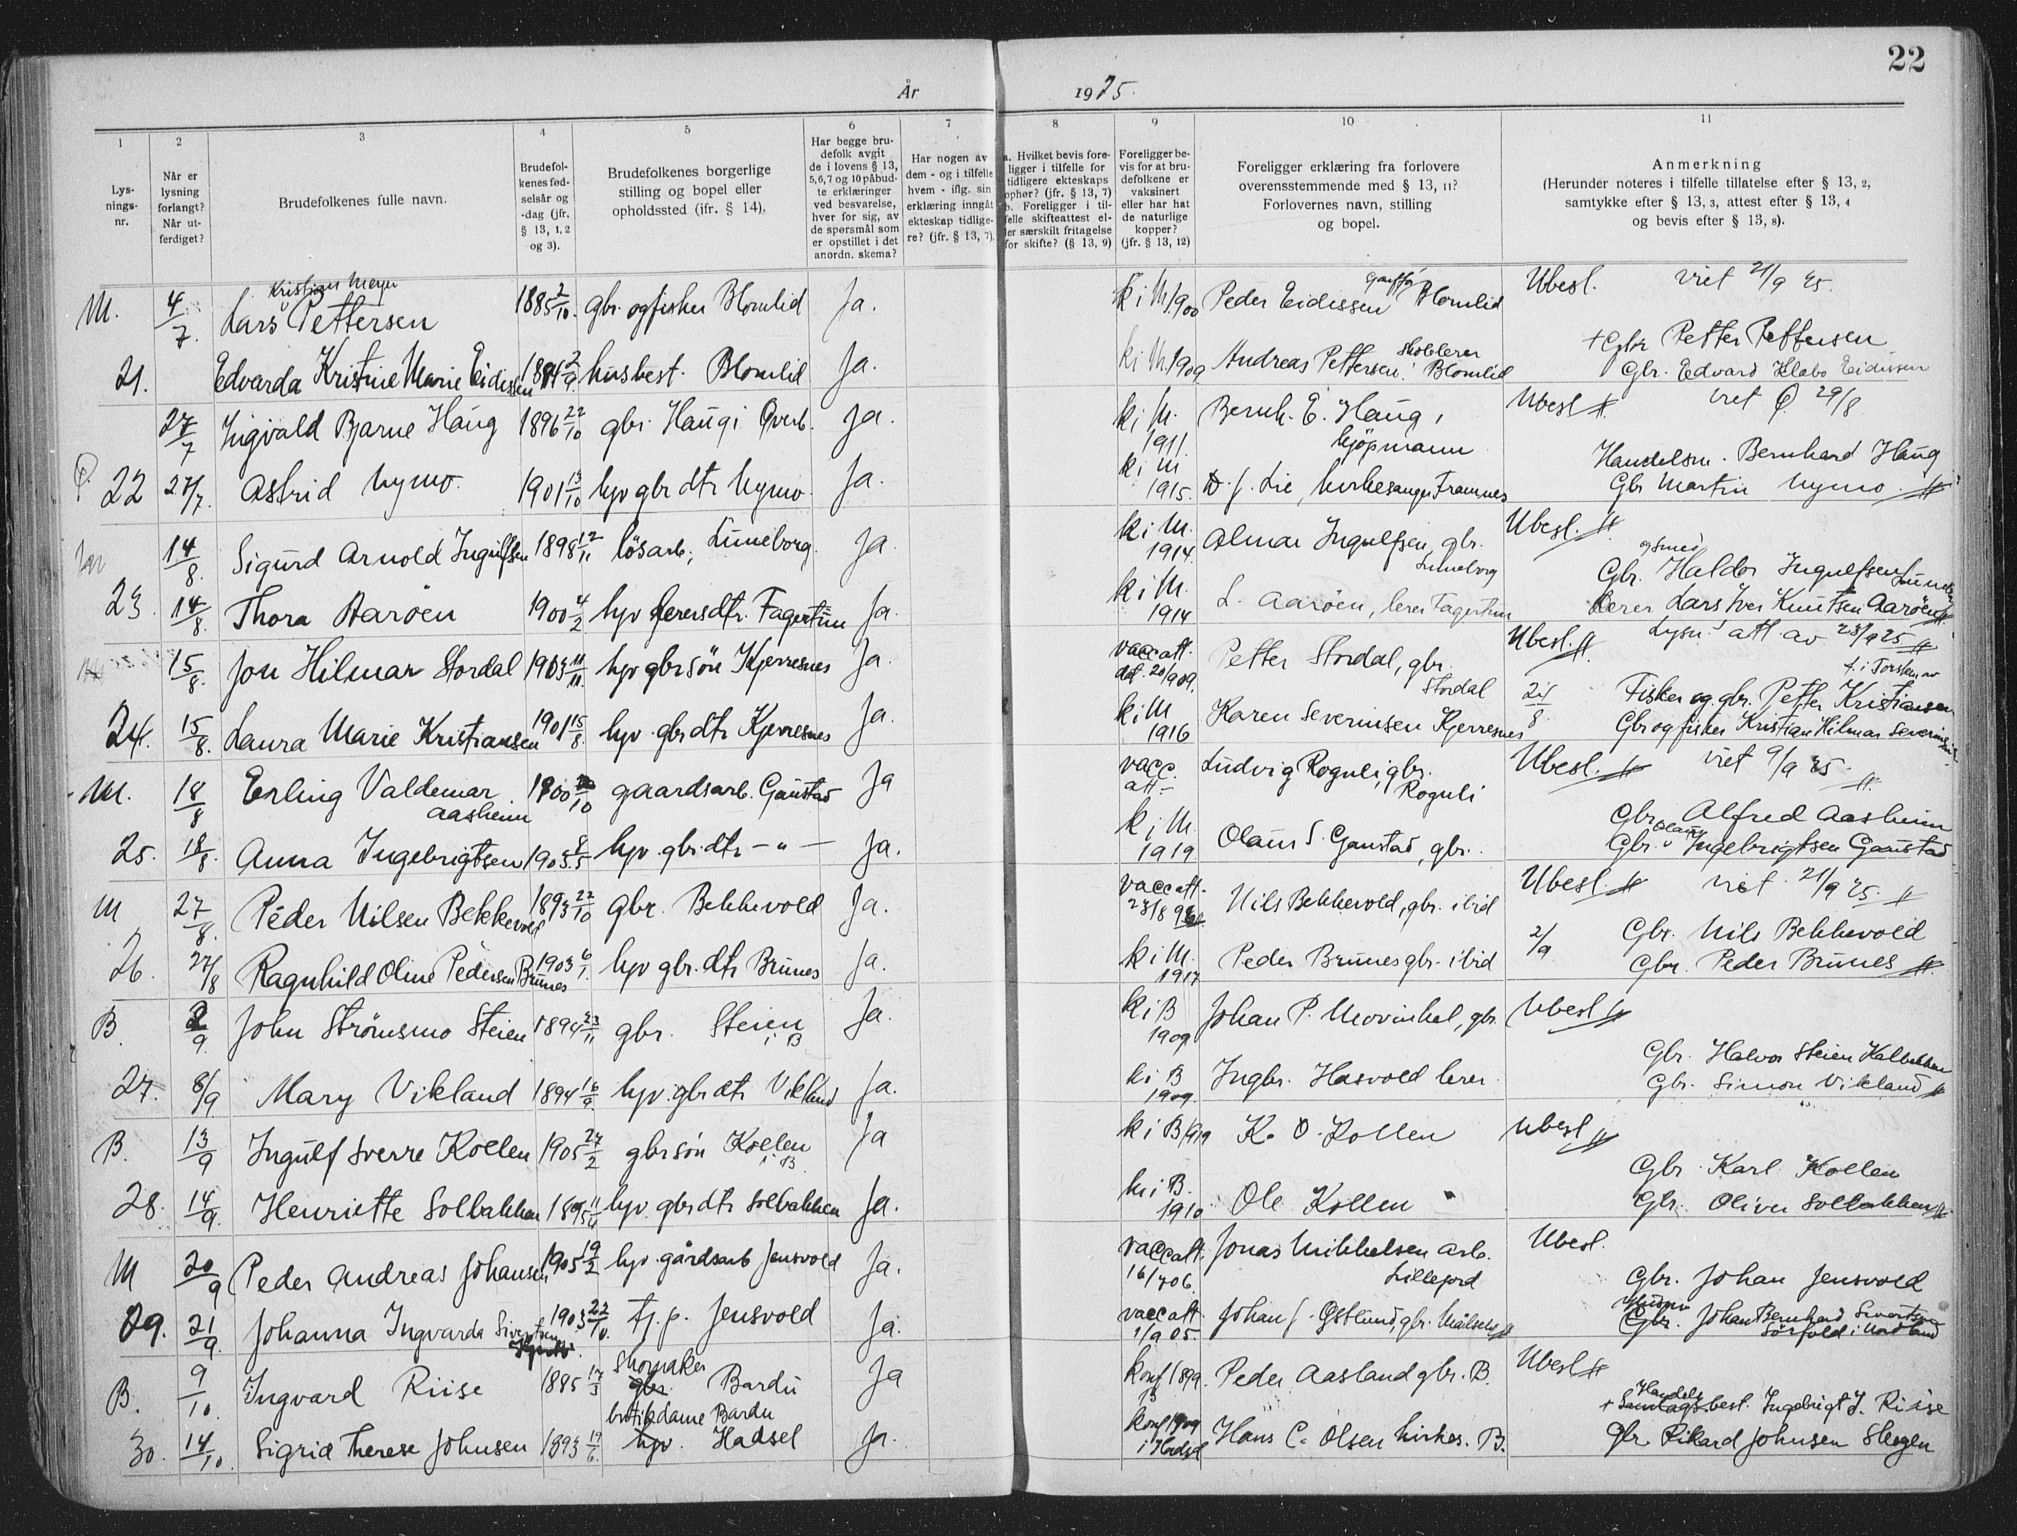 22
År 1925.
1 2 3 4 5 6 7 8 9 10 11
Lysnings-nr.
Når er lysning forlangt? Når utferdiget?
Brudefolkenes fulle navn.
Brudefolkenes fødselsår og -dag (jfr. § 13, 1, 2 og 3).
Brudefolkenes borgerlige stilling og bopel eller opholdssted (ifr. § 14),
Har begge brudefolk avgit de i lovens § 13, 5,6,7 og 10 påbudte erklæringer ved besvarelse, hver for sig, av de spørsmål som er opstillet i det anordn. skema?
Har nogen av dem - og i tilfelle hvem - iflg. sin erklæring inngåt ekteskap tidligere? (jfr. § 13, 7)
a. Hvilket bevis foreligger i tilfelle for tidligere ekteskaps ophør? (jfr. § 13, 7) b. Foreligger i tilfelle skifteattest eller særskilt fritagelse for skifte? (§ 13, 9)
Foreligger bevis for at brudefolkene er vaksinert eller har hat de naturlige kopper? (jfr. § 13, 12)
Foreligger erklæring fra forlovere overensstemmende med § 13, 11? Forlovernes navn, stilling og bopel.
Anmerkning (Herunder noteres i tilfelle tillatelse efter § 13, 2, samtykke efter § 13, 3, attest efter § 13, 4 og bevis efter § 13, 8).
M. 4/7. Lars Kristian Meyer Pettersen 1885 2/10. gbr. og fisker Blomlid Ja. k i M. 1900 Peder Eidissen Blomlid Ubesl. viet 21/9 25.
+ Gbr Petter Pettersen
21. Edvarda Kristine Marie Eidissen 2/9. husbest. Blomlid Ja. k i M. 1909 Andreas Pettersen. Blomlid Gbr. Edvard Eidissen
27/7 Ingvald Bjarne Haug 1896 22/10 gbr. Haug i Ja. k i M. 1911. Bernh. E. Haug, kjöpmann Ubesl viet 29/8
Handelsm. Bernhard Haug
22 27/7. Astrid Nymo. 1901 13/10 hjv gbr dtr Nymo. Ja. k i M 1915. Lie, kirkesanger Framnes Gbr Martin Nymo.
14/8. Sigurd Arnold Ingulfsen 1898 12/11 lösarb; Luneborg. Ja k i M. 1914. Almar Ingulfsen, gbr. Luneborg Ubesl.
Gbr. og smed Haldor Ingulfsen
23. 14/8. Thora Aarøen 1900 4/2 hjv lærersdtr. Fagertun Ja. k i M. 1914 L. Aarøen, lærer Fagertun Lærer Lars Iver Knutsen Aarøen
15/8. Jon Hilmar Stordal 1903 11/11. hjv gbr sön Kjerresnes Ja. vacc att. 20/9 09. Petter Stordal, gbr. Stordal Ubesl. Lysn. att av 23/9 25
24/8. Fisker og gbr. Petter Kristiansen
24. 15/8. Laura Marie Kristiansen 1901 15/8. hjv. gbr dtr Kjerresnes Ja. k i M 1916 Karen Severinsen Kjerresnes Gbr og fisker Kristian Hilmar Severinsen
M. 18/8 Erling Valdemar Aasheim 1900 /10 gaardsarb. Ganstad Ja vacc. att. Ludvig Roguli, gbr. Roguli Ubesl. viet 9/9 25.
Gbr Alfred Aasheim
25. 18/8. Anna Ingebrigtsen 1905 8/5 hjv. gbr dtr - " - Ja. k i M. 1919 Olaus S. Ganstad, gbr. Gbr. Olaus Ingebrigtsen Ganstad
M 27/8. Peder Nilsen Bekkevold 1893 22/10 gbr. Bekkevold Ja. vacc att. Nils Bekkevold, gbr. ibid Ubesl. viet 21/9 25
2/9 Gbr. Nils Bekkevold
26. 27/8 Ragnhild Oline Pedersen Brunes 1903 6/1. hjv gbr. dtr Brunes Ja. k i M. 1917 Peder Brunes gbr. ibid Gbr. Peder Brunes
B. 2/9. John Strömsmo Steien 1894 23/11 gbr. Steien i B Ja. k i B 1909 Johan P. Movinkel, gbr. Ubesl
Gbr. Halvor Steien
27. 8/9 Mary Vikland 1894 16/9. hjv. gbr dtr Vikland Ja. k i B 1909. Ingbr. Hasvold lærer. Gbr. Simon Vikland
B. 13/9 Ingulf Sverre Kollen 1905 27/2 gbr sön Kollen i B. Ja k i B 1919 K. O. Kollen Ubesl
Gbr. Karl Kollen
28. 14/9. Henriette Solbakken 1895 11/4 hjv. gbr dtr Solbakken Ja. k i B. 1910 Ole Kollen Gbr. Oliver Solbakken
M 20/9 Peder Andreas Johansen 1905 19/2 hjv. gårdsarb Jensvold Ja. vacc att. 16/7 06. Jonas Mikkelsen arb. Lillefjord Ubesl.
Gbr. Johan Jensvold
29. 21/9. Johanna Ingvarda Sivertsen 1903 22/10. tj. p. Jensvold Ja. vacc att. 1/9 05 Johan J. Östlund, gbr. Målselv Gbr. Johan Bernhard Sivertsen Sörfold i Nordland
B. 9/10. Ingvard Riise 1885 17/3 gbr. Skomaker Bardu Ja konf 1899. B Peder Aasland gbr. B. Ubesl
+ Handels best. Ingebrigt J. Riise
30. 14/10. Sigrid Therese Johnsen 1893 19/6. hjv. butikdame Bardu Hadsel Ja. konf 1909 i Hadsel Hans C. Olsen kirkes. B. Gbr. Rikard Johnsen